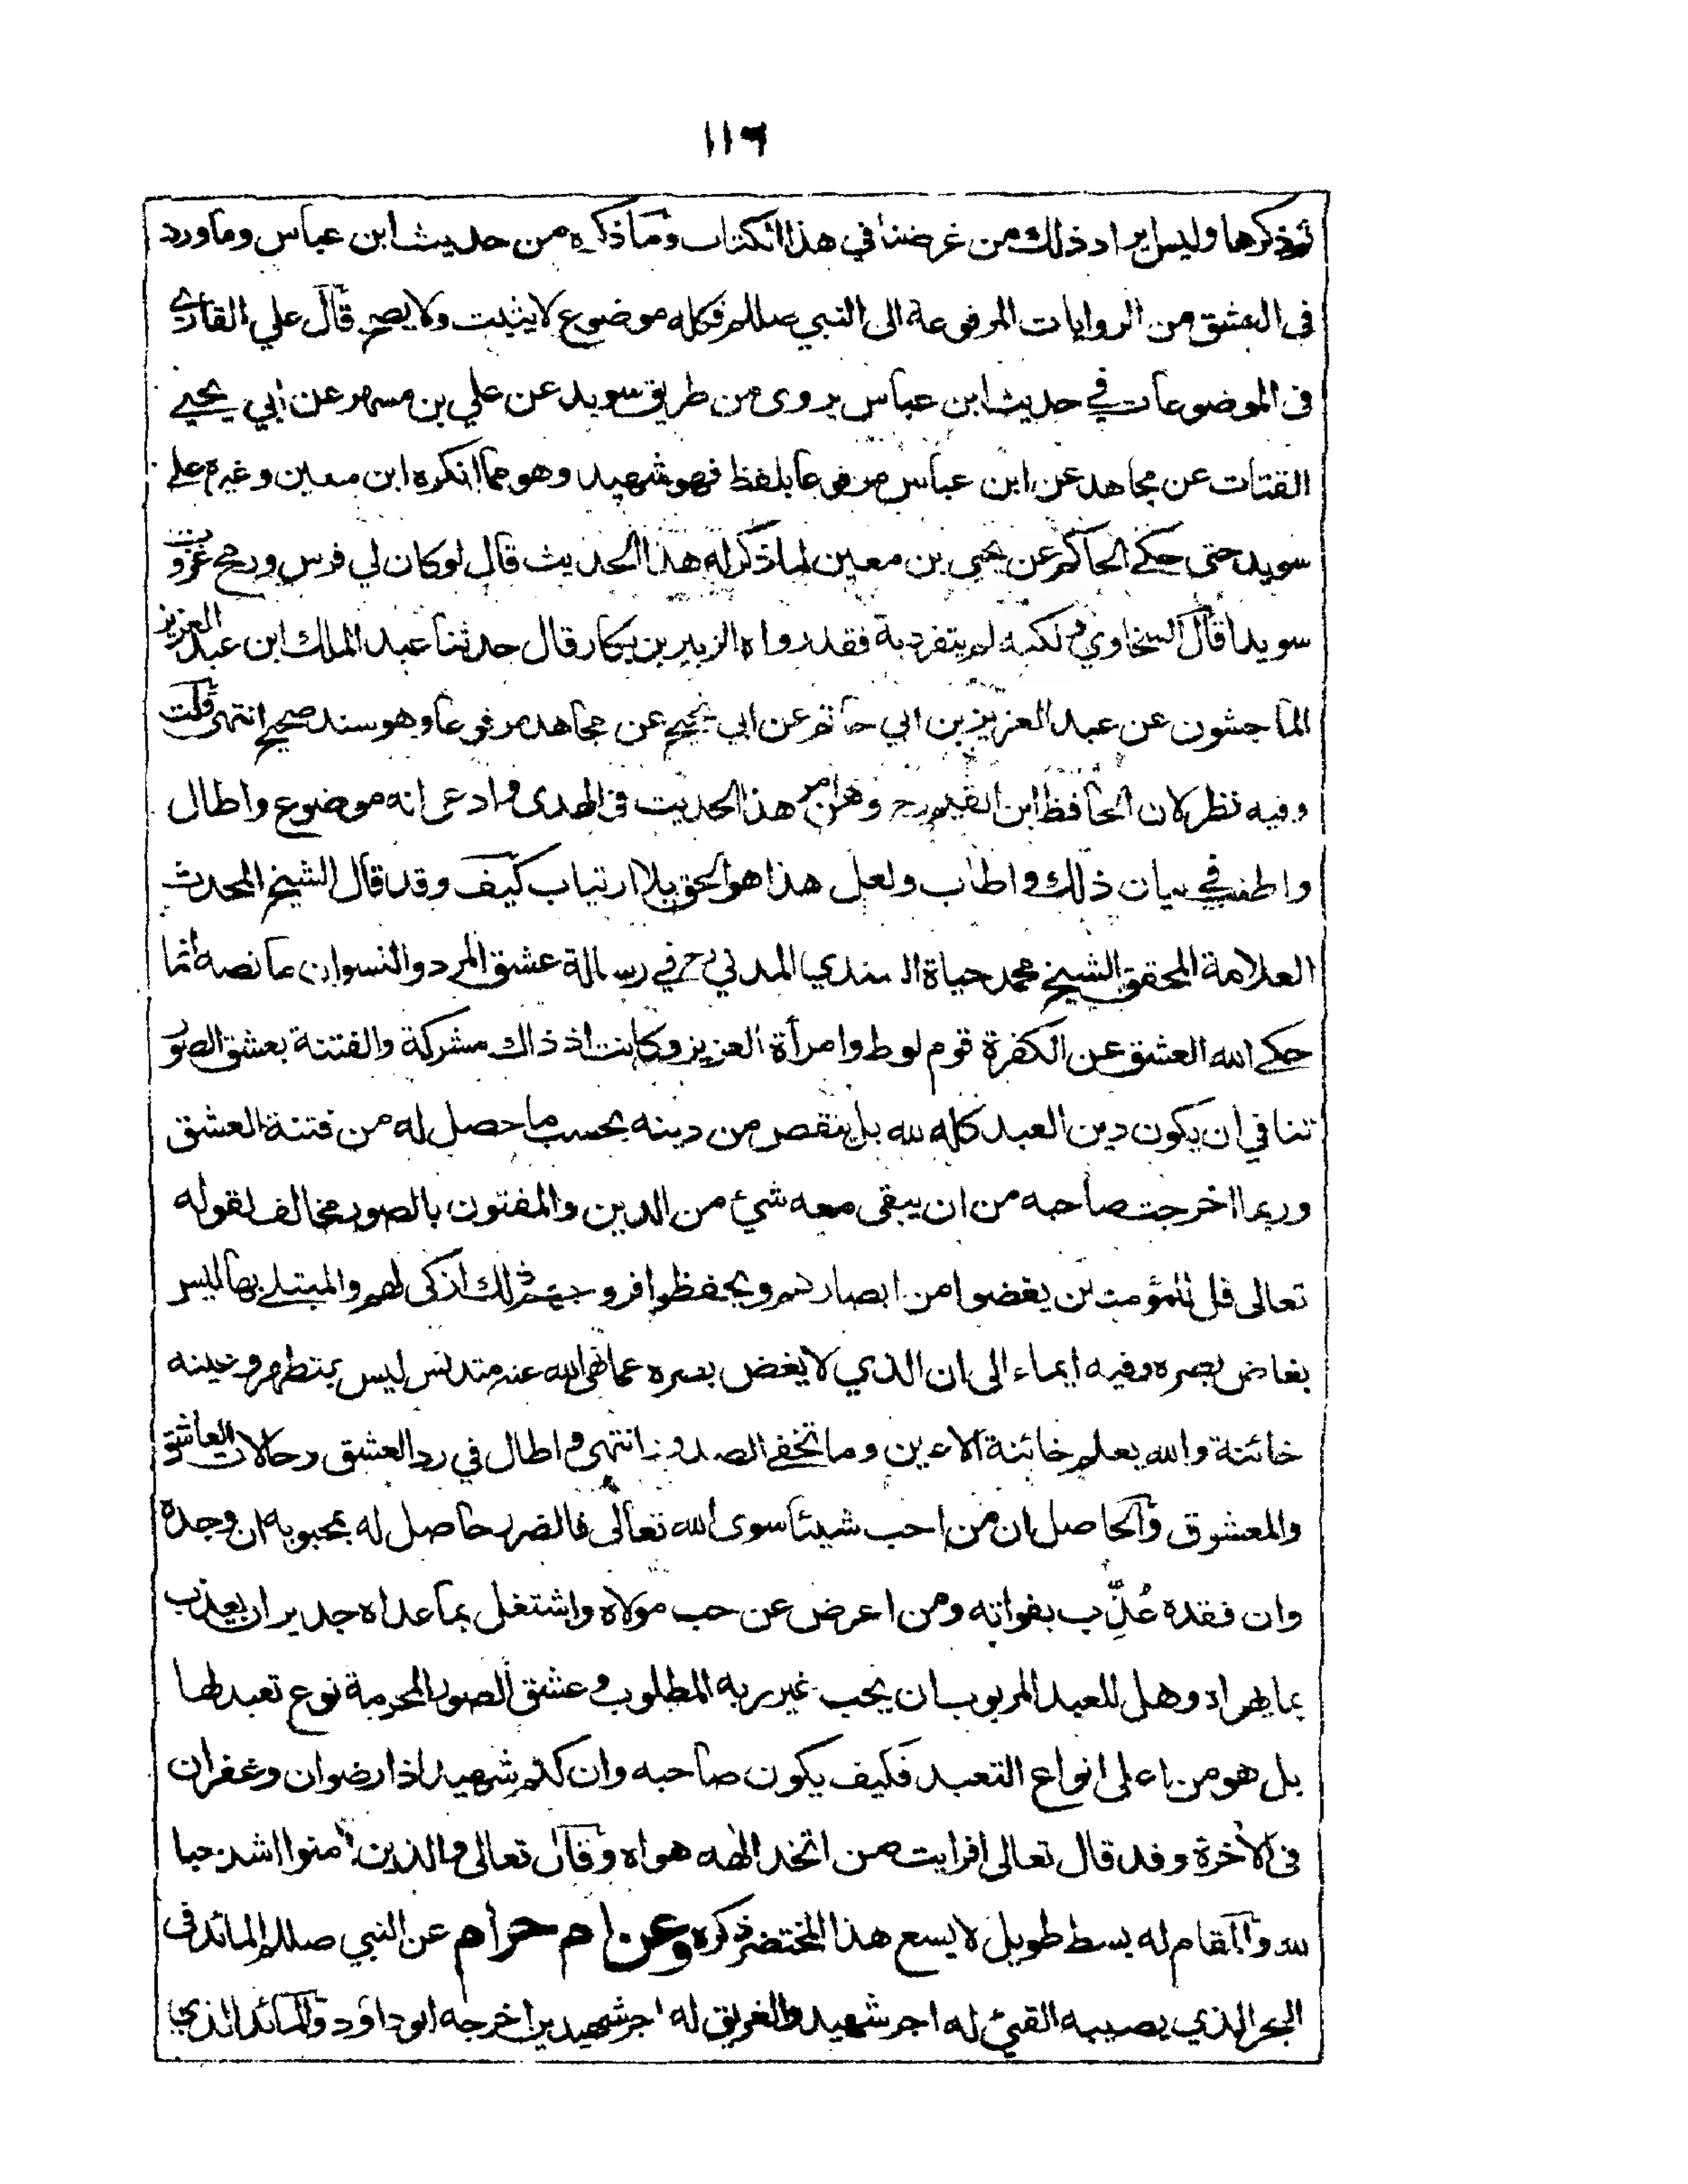 ١١٦
نذكرها وليس ايراد ذلك من غرضنا في هذا الكتاب وما ذكره من حديث ابن عباس وما ورد
فى العشق من الروايات المرفوعة الى النبي صللم فكله موضوع لا يثبت ولا يصح قال علي القارى
فى الموضوعات في حديث ابن عباس يروى من طريق سويد عن علي بن مسهر عن ابي يحيى
القتات عن مجاهد عن ابن عباس مرفوعا بلفظ فهو شهيد وهو مما انكره ابن معين وغيره على
سويد حتى حكى الحاكم عن يحيى بن معين لما ذكر له هذا الحديث قال لو كان لي فرس ورمح غزوت
سويدا قال السخاوي ولكنه لم يتفرد به فقد رواه الزبير بن بكار قال حدثنا عبد الملك ابن عبد العزيز
الماجشون عن عبد العزيز بن ابي حاتم عن ابي نجيح عن مجاهد مرفوعا وهو سند صحيح انتهى قلت
وفيه نظر لان الحافظ ابن القيم رح وهن امر هذا الحديث فى الهدى وادعى انه موضوع واطال
واطنب في بيان ذلك واطاب ولعل هذا هو الحق بلا ارتياب كيف وقد قال الشيخ المحدث
العلامة المحقق الشيخ محمد حياة السندي المدني رح في رسالة عشق المرد والنسوان ما نصه انما
حكى الله العشق عن الكفرة قوم لوط وامرأة العزيز وكانت اذ ذاك مشركة والفتنة بعشق الصور
تنافي ان يكون دين العبد كله لله بل ينقص من دينه بحسب ما حصل له من فتنة العشق
وربما اخرجت صاحبه من ان يبقى معه شيء من الدين والمفتون بالصور مخالف لقوله
تعالى قل للمؤمنين يغضوا من ابصارهم ويحفظوا فروجهم ذلك ازكى لهم والمبتلى بها ليس
بغاض بصره وفيه ايماء الى ان الذي لا يغض بصره عما نهى الله عنه متدنس ليس بمتطهر وعينه
خائنة والله يعلم خائنة الاعين وما تخفي الصدور انتهى واطال في رد العشق وحالات العاشق
والمعشوق والحاصل ان من احب شيئا سوى الله تعالى فالضرر حاصل له بمحبوبه ان وجده
وان فقده عُذِّب بفواته ومن اعرض عن حب مولاه واشتغل بما عداه جدير ان يعذب
بما يهواه وهل للعبد المربوب ان يحب غير ربه المطلوب وعشق الصور المحرمة نوع تعبد لها
بل هو من اعلى انواع التعبد فكيف يكون صاحبه وان كتم شهيدا ذا رضوان وغفران
فى الآخرة وقد قال تعالى افرايت من اتخذ الهه هواه وقال تعالى والذين آمنوا اشد حبا
لله والمقام له بسط طويل لا يسع هذا المختصر ذكره وعن ام حرام عن النبي صللم المائد فى
البحر الذي يصيبه القيء له اجر شهيد والغريق له اجر شهيدين اخرجه ابو داؤد والمائد الذي